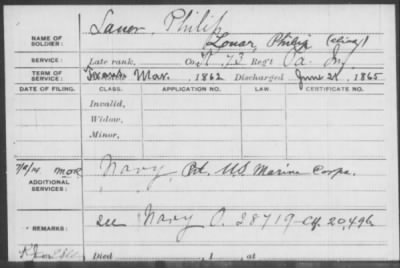 Lauer, Philip
NAME OF SOLDIER: Louar, Philip (alias)
SERVICE: Late rank, Co. 73 Reg't Pa. Inf
TERM OF SERVICE: Mar. 1862 Discharged June 21, 1865
DATE OF FILING. CLASS. APPLICATION NO. LAW. CERTIFICATE NO.
Invalid,
Widow,
Minor,
ADDITIONAL SERVICES: Navy, Pvt. US Marine Corps.
REMARKS: see Navy O. 28719 - Cff. 20,496
Died , 1 , at